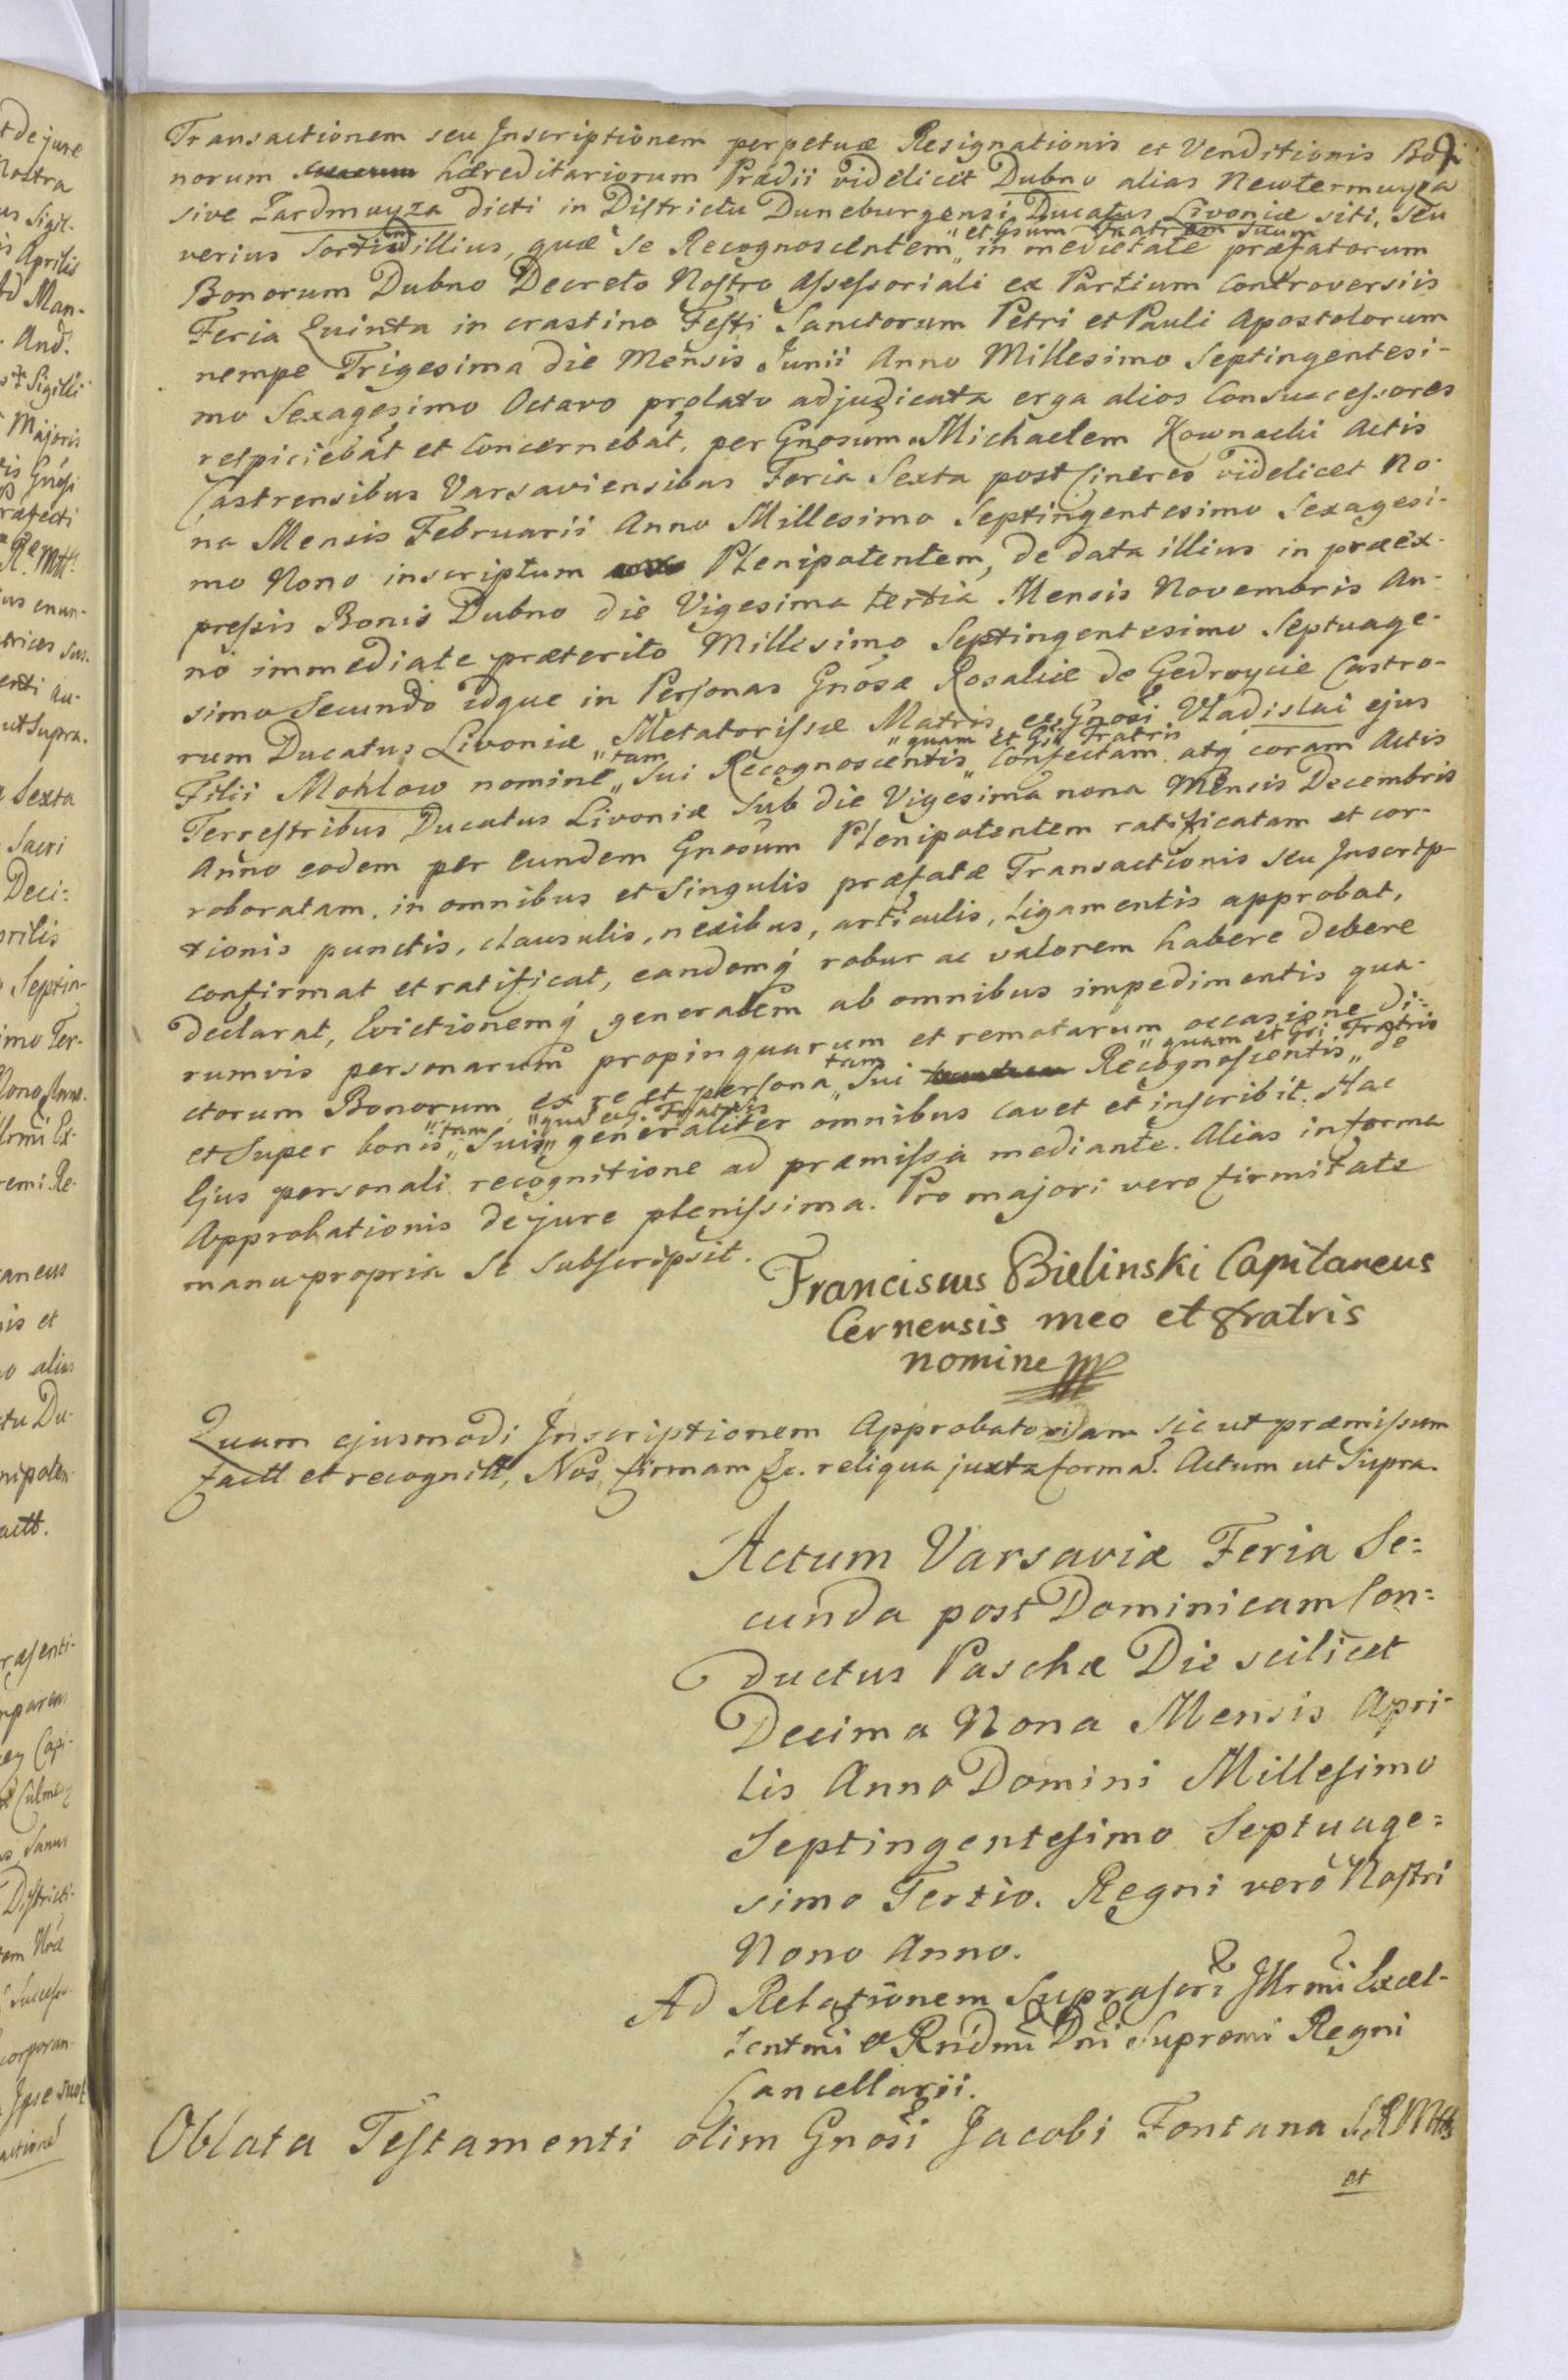 Transactionem seu Jnscriptionem perpetuæ Resignationis et Venditionis Bo-
norum hæreditariorum Prædii videlicet Dubno alias Newtermuyza
sive Zardmuyza dicti in Districtu Duneburgensi Ducatus Livoniæ siti, seu
verius Sortium illius, quæ se Recognoscentem „et Gsum Fratrem Suum in medietate præfatorum
Bonorum Dubno Decreto Nostro Assessoriali ex Partium Controversiis
Feria Quinta in crastino Festi Sanctorum Petri et Pauli Apostolorum
nempe Trigesima die Mensis Junii Anno Millesimo Septingentesi-
mo Sexagesimo Octavo prolato adjudicata erga alios Consuccessores
respiciebat et Concernebat, per Gnosum Michaelem Kownacki Actis
Castrensibus Varsaviensibus Feria Sexta post Cineres videlicet No-
na Mensis Februarii Anno Millesimo Septingentesimo Sexagesi-
mo Nono inscriptum Plenipotentem, de data illius in præex-
pressis Bonis Dubno die Vigesima tertia Mensis Novembris An-
no immediate præterito Millesimo Septingentesimo Septuage-
simo Secundo idque in Personas Gnosæ Rosaliæ de Gedroycie Castro-
rum Ducatus Livoniæ Metatorissæ Matris, et Gnosi Vladislai ejus
Filii Mohlow nomine „tam Sui Recognoscentis „quam et Gsi Fratris Confectam atq coram Actis
Terrestribus Ducatus Livoniæ Sub die Vigesima nona Mensis Decembris
Anno eodem per eundem Gnosum Plenipotentem ratificatam et cor-
roboratam, in omnibus et Singulis præfatæ Transactionis seu Jnscrip-
tionis punctis, clausulis, nexibus, articulis, ligamentis approbat,
Confirmat et ratificat, eandemq robur ac valorem habere debere
declarat, Evictionemq generalem ab omnibus impedimentis qua-
rumvis personarum propinquarum et remotarum occasione di-
ctorum Bonorum ex re et persona „tam Sui Recognoscentis „quam et Gsi Fratris de
et Super bonis „tam Suis „qua et G. Fratris generaliter omnibus cavet et inscribit. Hac
Ejus personali recognitione ad præmissa mediante. Alias in forma
Approbationis de jure plenissima. Pro majori vero firmitate
manu propria se subscripsit.
Franciscus Bielinski Capitaneus
Cernensis meo et fratris
nomine mp
Quam ejusmodi Jnscriptionem Approbatoriam sic ut præmissum
factt et recognitt, Nos, firmam &c. reliqua juxta formā. Actum ut Supra.
Actum Varsaviæ Feria Se=
cunda post Dominicam Con=
ductus Paschæ Die scilicet
Decima Nona Mensis Apri-
lis Anno Domini Millesimo
Septingentesimo Septuage=
simo Tertio. Regni vero Nostri
Nono Anno.
Ad Relationem Suprascri Jllrmi Excel-
lentmi et Rndmi Dni Supremi Regni
Cancellarii.
Oblata Testamenti olim Gnosi Jacobi Fontana S. R. Mttis
et